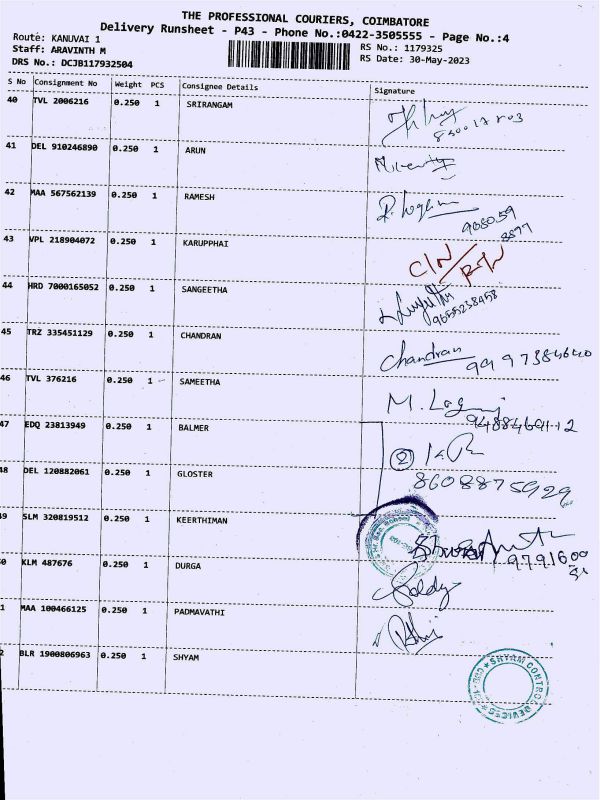 THE PROFESSIONAL COURIERS, COIMBATORE
Delivery Runsheet - P43 - Phone No.:0422-3505555 - Page No.:4
Route: KANUVAI 1
Staff: ARAVINTH M
DRS No.: DCJB117932504
RS No.: 1179325
RS Date: 30-May-2023
S No Consignment No Weight PCS Consignee Details Signature
40 TVL 2006216 0.250 1 SRIRANGAM
41 DEL 910246890 0.250 1 ARUN
42 MAA 567562139 0.250 1 RAMESH
43 VPL 218904072 0.250 1 KARUPPHAI
C/N
44 HRD 7000165052 0.250 1 SANGEETHA
9655238458
45 TRZ 335451129 0.250 1 CHANDRAN
Chandran 9997384640
46 TVL 376216 0.250 1 SAMEETHA
47 EDQ 23813949 0.250 1 BALMER
2
48 DEL 120882061 0.250 1 GLOSTER
8608875929
49 SLM 320819512 0.250 1 KEERTHIMAN
0 KLM 487676 0.250 1 DURGA
1 MAA 100466125 0.250 1 PADMAVATHI
2 BLR 1900806963 0.250 1 SHYAM
SHYAM CONTROL DEVICES